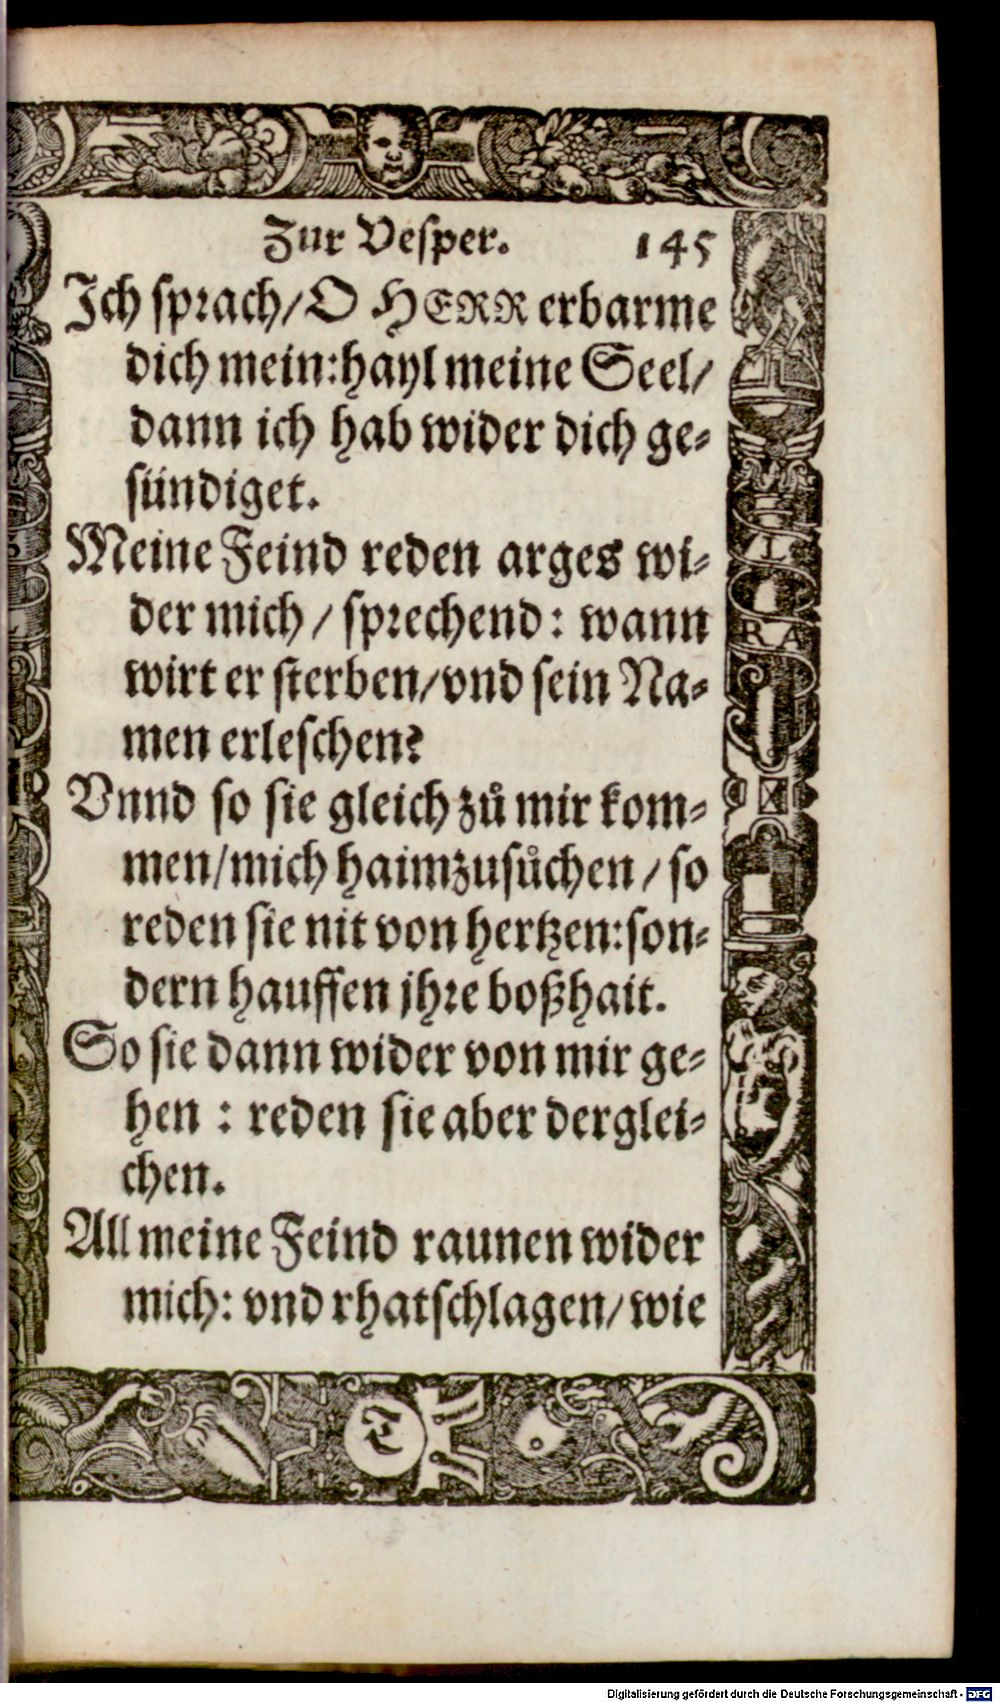 Zur Vesper. 145
Ich sprach/ O HERR erbarme
dich mein: hayl meine Seel/
dann ich hab wider dich ge-
sündiget.
Meine Feind reden arges wi-
der mich / sprechend: wann
wirt er sterben/ vnd sein Na-
men erleschen?
Vnnd so sie gleich zů mir kom-
men/ mich haimzusůchen / so
reden sie nit von hertzen: son-
dern hauffen jhre boßhait.
So sie dann wider von mir ge-
hen : reden sie aber derglei-
chen.
All meine Feind raunen wider
mich: vnd rhatschlagen/ wie
L
RA
Digitalisierung gefördert durch die Deutsche Forschungsgemeinschaft - DFG